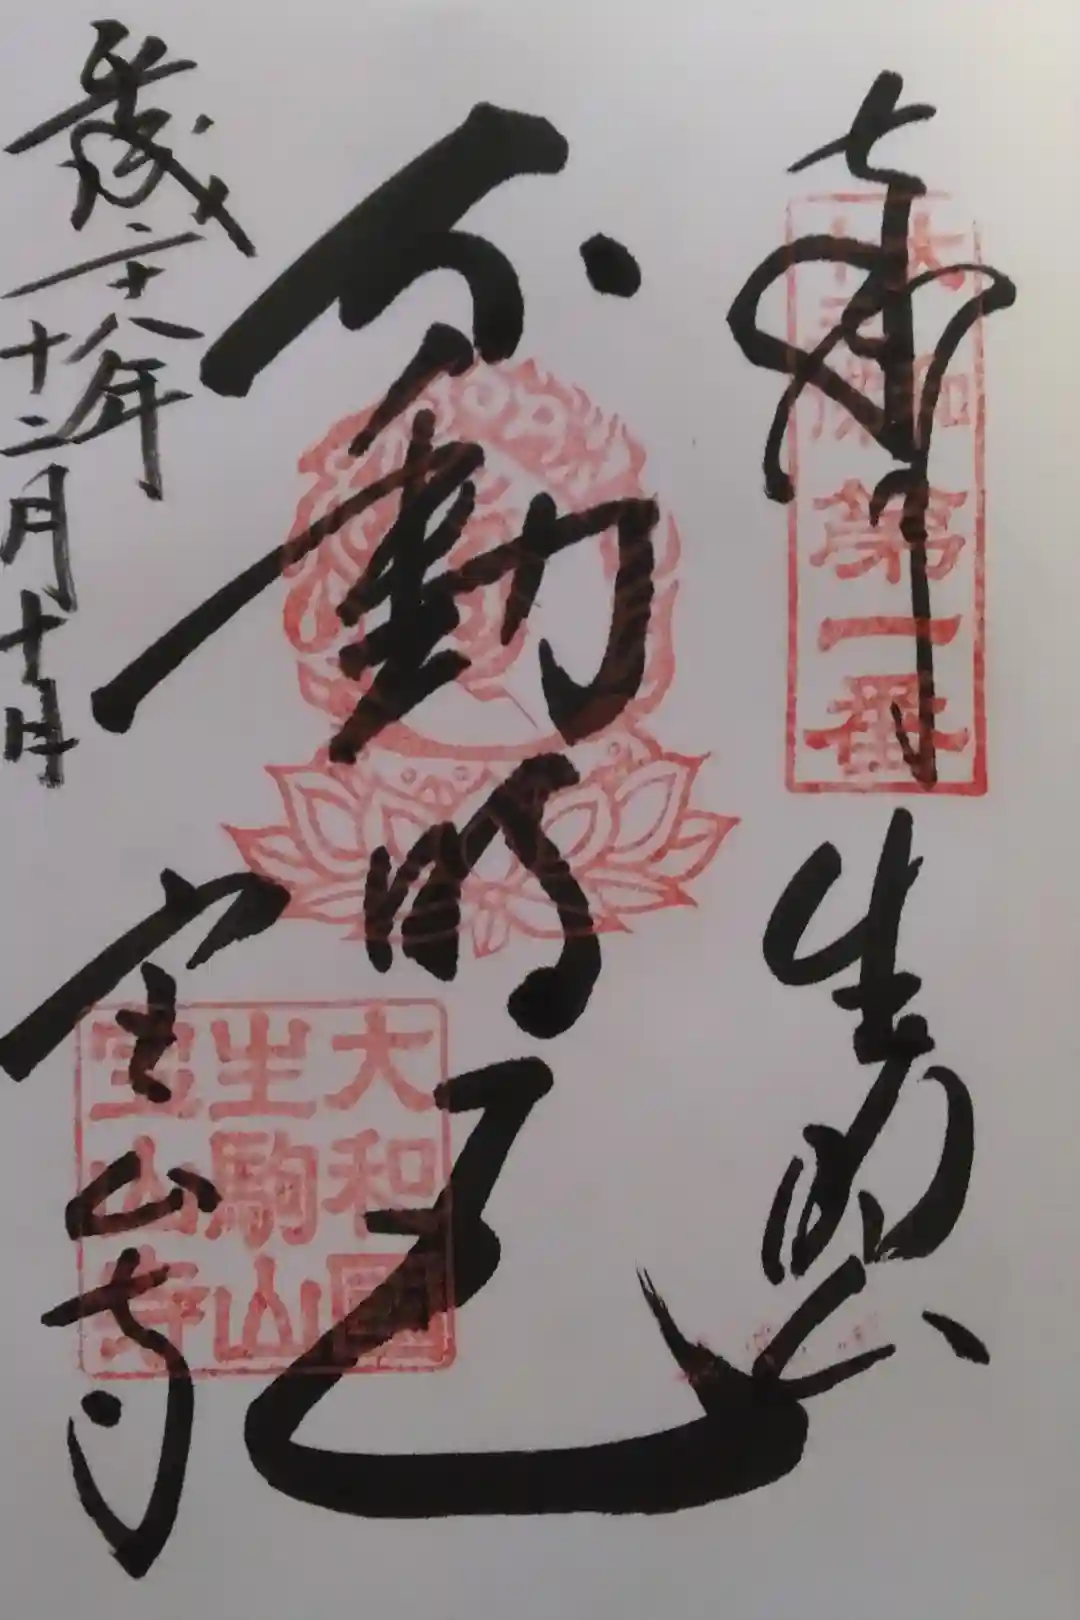 奉拝
生駒山
大和
十三佛
第一番
不動明王
大和國
生駒山
宝山寺
二十八年
十二月十日
宝山寺